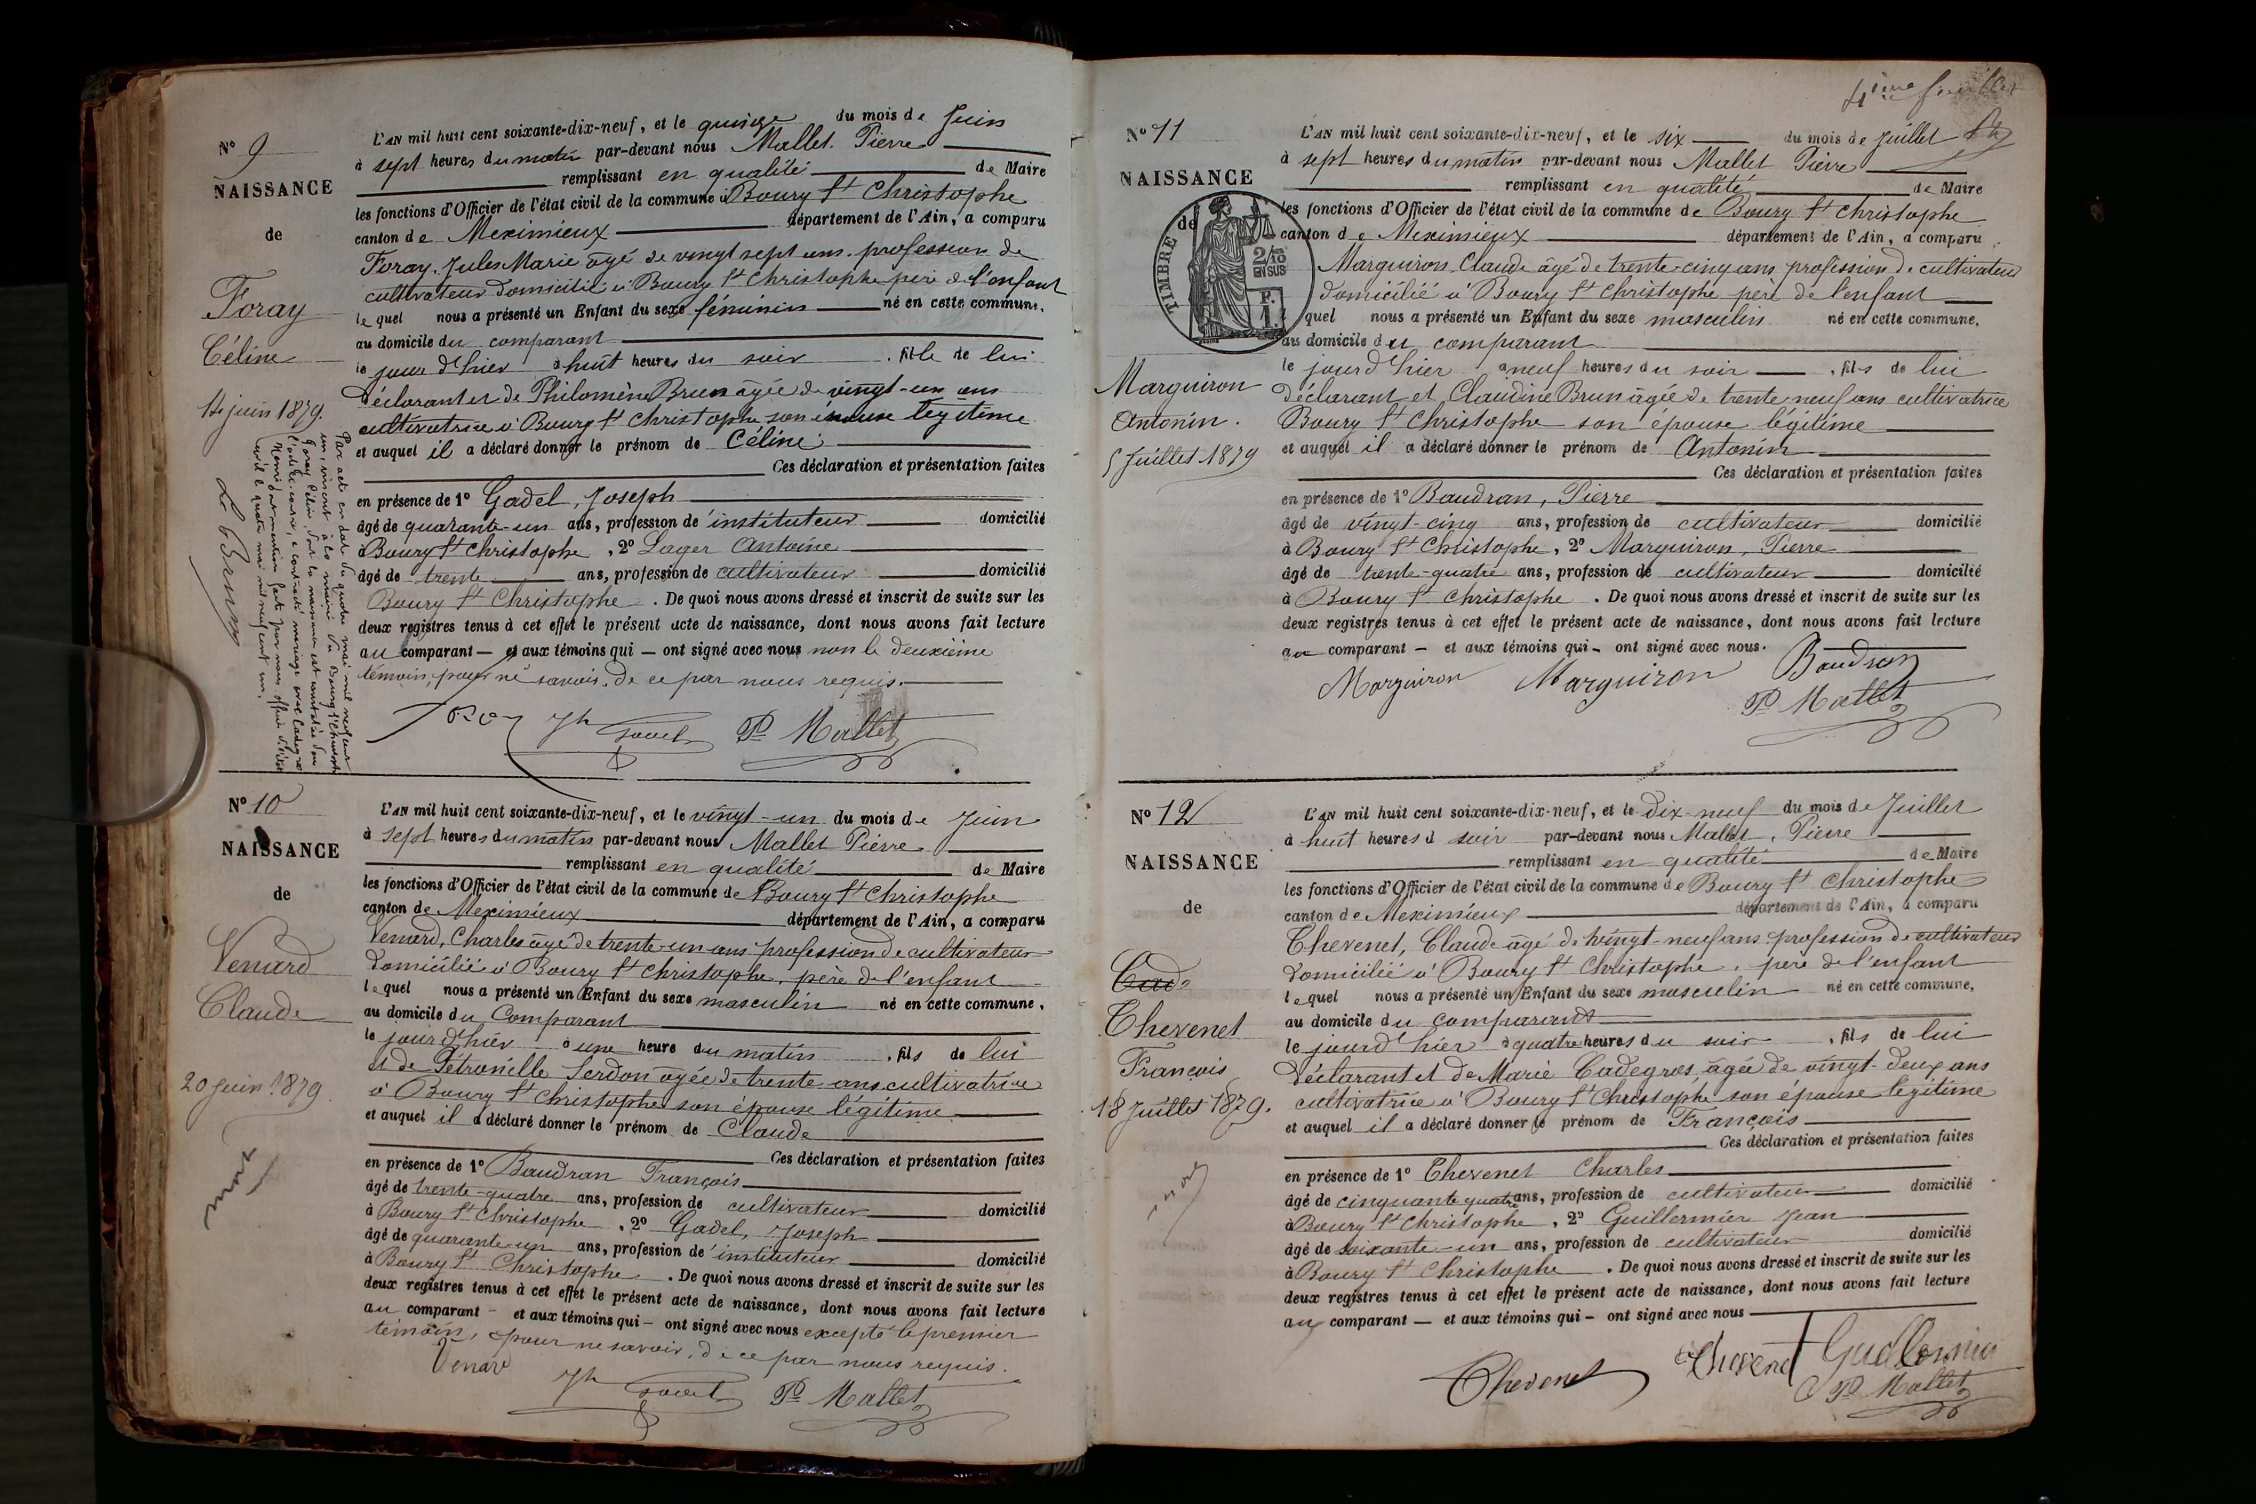 N° 9
NAISSANCE
de
Foray
Céline
14 juin 1879.
L'AN mil huit cent soixante-dix-neuf, et le quinze du mois de Juin
à sept heures du matin par-devant nous Mallet. Pierre
remplissant en qualité de Maire
les fonctions d'Officier de l'état civil de la commune de Boury St Christophe
canton de Meximieux département de l'Ain, a comparu
Foray, Jules Marie âgé de vingt sept ans. profession de
cultivateur domicilié à Boury St Christophe père de l'enfant
le quel nous a présenté un Enfant du sexe féminin né en cette commune.
au domicile du comparant
le jour d'hier à huit heures du soir . fille de lui
déclarant et de Philomène Brun âgée de vingt-un ans
cultivatrice à Boury St Christophe son épouse légitime
et auquel il a déclaré donner le prénom de Céline.
Ces déclaration et présentation faites
en présence de 1° Gadel, Joseph
âgé de quarante-un ans, profession de instituteur domicilié
à Boury St Christophe , 2° Lager Antoine
âgé de trente ans, profession de cultivateur domicilié
Boury St Christophe . De quoi nous avons dressé et inscrit de suite sur les
deux registres tenus à cet effet le présent acte de naissance, dont nous avons fait lecture
au comparant — et aux témoins qui — ont signé avec nous non le deuxième
témoin, pour ne savoir, de ce par nous requis.
P. Mallet
Par acte en date du quatre mai mil neuf cent
un, inscrit à la mairie de Bourg St Christophe
Foray Céline, dont la naissance est constatée
ci-contre, a contracté mariage avec Cadegros
mention faite par nous officier d'état
civil le quatre mai mil neuf cent un.
Le Brun
N° 10
NAISSANCE
de
Venard
Claude
20 juin 1879.
mort
L'AN mil huit cent soixante-dix-neuf, et le vingt-un du mois de Juin
à sept heures du matin par-devant nous Mallet Pierre
remplissant en qualité de Maire
les fonctions d'Officier de l'état civil de la commune de Boury St Christophe
canton de Meximieux département de l'Ain, a comparu
Venard, Charles âgé de trente-un ans profession de cultivateur
domicilié à Boury St Christophe, père de l'enfant
le quel nous a présenté un Enfant du sexe masculin né en cette commune,
au domicile du Comparant
le jour d'hier à une heure du matin , fils de lui
et de Pétronille Serdon âgée de trente ans cultivatrice
à Boury St Christophe son épouse légitime
et auquel il a déclaré donner le prénom de Claude
Ces déclaration et présentation faites
en présence de 1° Baudran François
âgé de trente-quatre ans, profession de cultivateur domicilié
à Boury St Christophe , 2° Gadel, Joseph
âgé de quarante-un ans, profession de instituteur domicilié
à Boury St Christophe . De quoi nous avons dressé et inscrit de suite sur les
deux registres tenus à cet effet le présent acte de naissance, dont nous avons fait lecture
au comparant - et aux témoins qui - ont signé avec nous excepté le premier
témoin, pour ne savoir, de ce par nous requis.
Venard
P. Mallet
4ième feuillet
N° 11
NAISSANCE
de
TIMBRE
2/10
EN SUS
Marguiron
Antonin.
5 Juillet 1879
L'AN mil huit cent soixante-dix-neuf, et le six du mois de Juillet
à sept heures du matin par-devant nous Mallet Pierre
remplissant en qualité de Maire
les fonctions d'Officier de l'état civil de la commune de Boury St Christophe
canton de Meximieux département de l'Ain, a comparu
Marguiron Claude âgé de trente-cinq ans profession de cultivateur
domicilié à Boury St Christophe père de l'enfant
quel nous a présenté un Enfant du sexe masculin né en cette commune.
au domicile du comparant
le jour d'hier à neuf heures du soir , fils de lui
déclarant et Claudine Brun âgée de trente neuf ans cultivatrice
Boury St Christophe son épouse légitime
et auquel il a déclaré donner le prénom de Antonin
Ces déclaration et présentation faites
en présence de 1° Baudran, Pierre
âgé de vingt-cinq ans, profession de cultivateur domicilié
à Boury St Christophe, 2° Marguiron, Pierre
âgé de trente-quatre ans, profession de cultivateur domicilié
à Boury St Christophe . De quoi nous avons dressé et inscrit de suite sur les
deux registres tenus à cet effet le présent acte de naissance, dont nous avons fait lecture
au comparant - et aux témoins qui - ont signé avec nous.
Marguiron Marguiron Baudran
P. Mallet
N° 12
NAISSANCE
de
Cad
Thevenet
François
18 Juillet 1879.
mort
L'AN mil huit cent soixante-dix-neuf, et le dix-neuf du mois de Juillet
à huit heures d soir par-devant nous Mallet, Pierre
remplissant en qualité de Maire
les fonctions d'Officier de l'état civil de la commune de Boury St Christophe
canton de Meximieux département de l'Ain, a comparu
Thevenet, Claude âgé de vingt-neuf ans profession de cultivateur
domicilié à Boury St Christophe, père de l'enfant
le quel nous a présenté un Enfant du sexe masculin né en cette commune,
au domicile du comparant
le jour d'hier à quatre heures du soir , fils de lui
déclarant et de Marie Cadegros, âgée de vingt-deux ans
cultivatrice à Boury St Christophe son épouse légitime
et auquel il a déclaré donner le prénom de François
Ces déclaration et présentation faites
en présence de 1° Thevenet Charles
âgé de cinquante quatre ans, profession de cultivateur domicilié
à Boury St Christophe, 2° Guillermier Jean
âgé de soixante-un ans, profession de cultivateur domicilié
à Boury St Christophe . De quoi nous avons dressé et inscrit de suite sur les
deux registres tenus à cet effet le présent acte de naissance, dont nous avons fait lecture
au comparant — et aux témoins qui - ont signé avec nous
Thevenet Thevenet Guillermier
P. Mallet